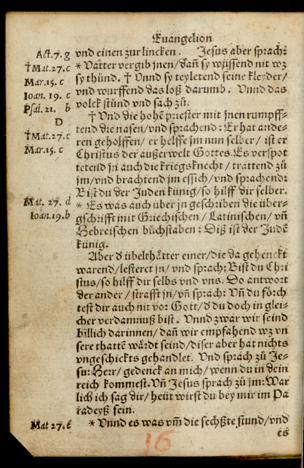 Euangelion
Act.7.g vnd einen zur lincken. Jesus aber sprach:
†Mat.27.c * Vatter vergib jnen/dañ sy wüssend nit wz
Mar.15.c sy thůnd. † Vnnd sy teyletend seine kleyder/
Ioan.19.c vnd wurffend das loß darumb. Vnnd das
Psal.21.b volck stůnd vnd sach zů.
D † Vnd die hohẽ priester mit jnen rumpff-
†Mat.27.c tend die nasen/vnd sprachend: Er hat ande-
Mar.15.c ren geholffen/ er helffe jm nun selber/ ist er
Christus der außerwelt Gottes. Es verspot
tetend jn auch die kriegsknecht/trattend zů
jm/vnd brachtend jm essich/vnd sprachend:
Bist du der Juden künig/so hilff dir selber.
Mat.27.d * Es was auch über jn geschribẽ die über-
Ioan.19.b gschrifft mit Griechischen/ Latinischen/ vñ
Hebreischen bůchstaben: Diß ist der Judẽ
künig.
Aber ð übelthätter einer/die da gehenckt
warend/lesteret jn/vnd sprach: Bist du Chri
stus/so hilff dir selbs vnd vns. Do antwort
der ander/ strafft jn/vñ sprach: Vñ du förch
test dir auch nit vor Gott/ð du doch in glei-
cher verdamnuß bist. Vnnd zwar wir seind
billich darinnen/dañ wir empfahend wz vn
sere thatẽ wärdt seind/diser aber hat nichts
vngeschickts gehandlet. Vnd sprach zů Je-
su: Herr/gedenck an mich/wenn du in dein
reich kommest. Vñ Jesus sprach zů jm: War
lich ich sag dir/heüt wirst du bey mir im Pa
radeyß sein.
Mat.27.e * Vnnd es was vm̃ die sechßte stund/vnd
es
16